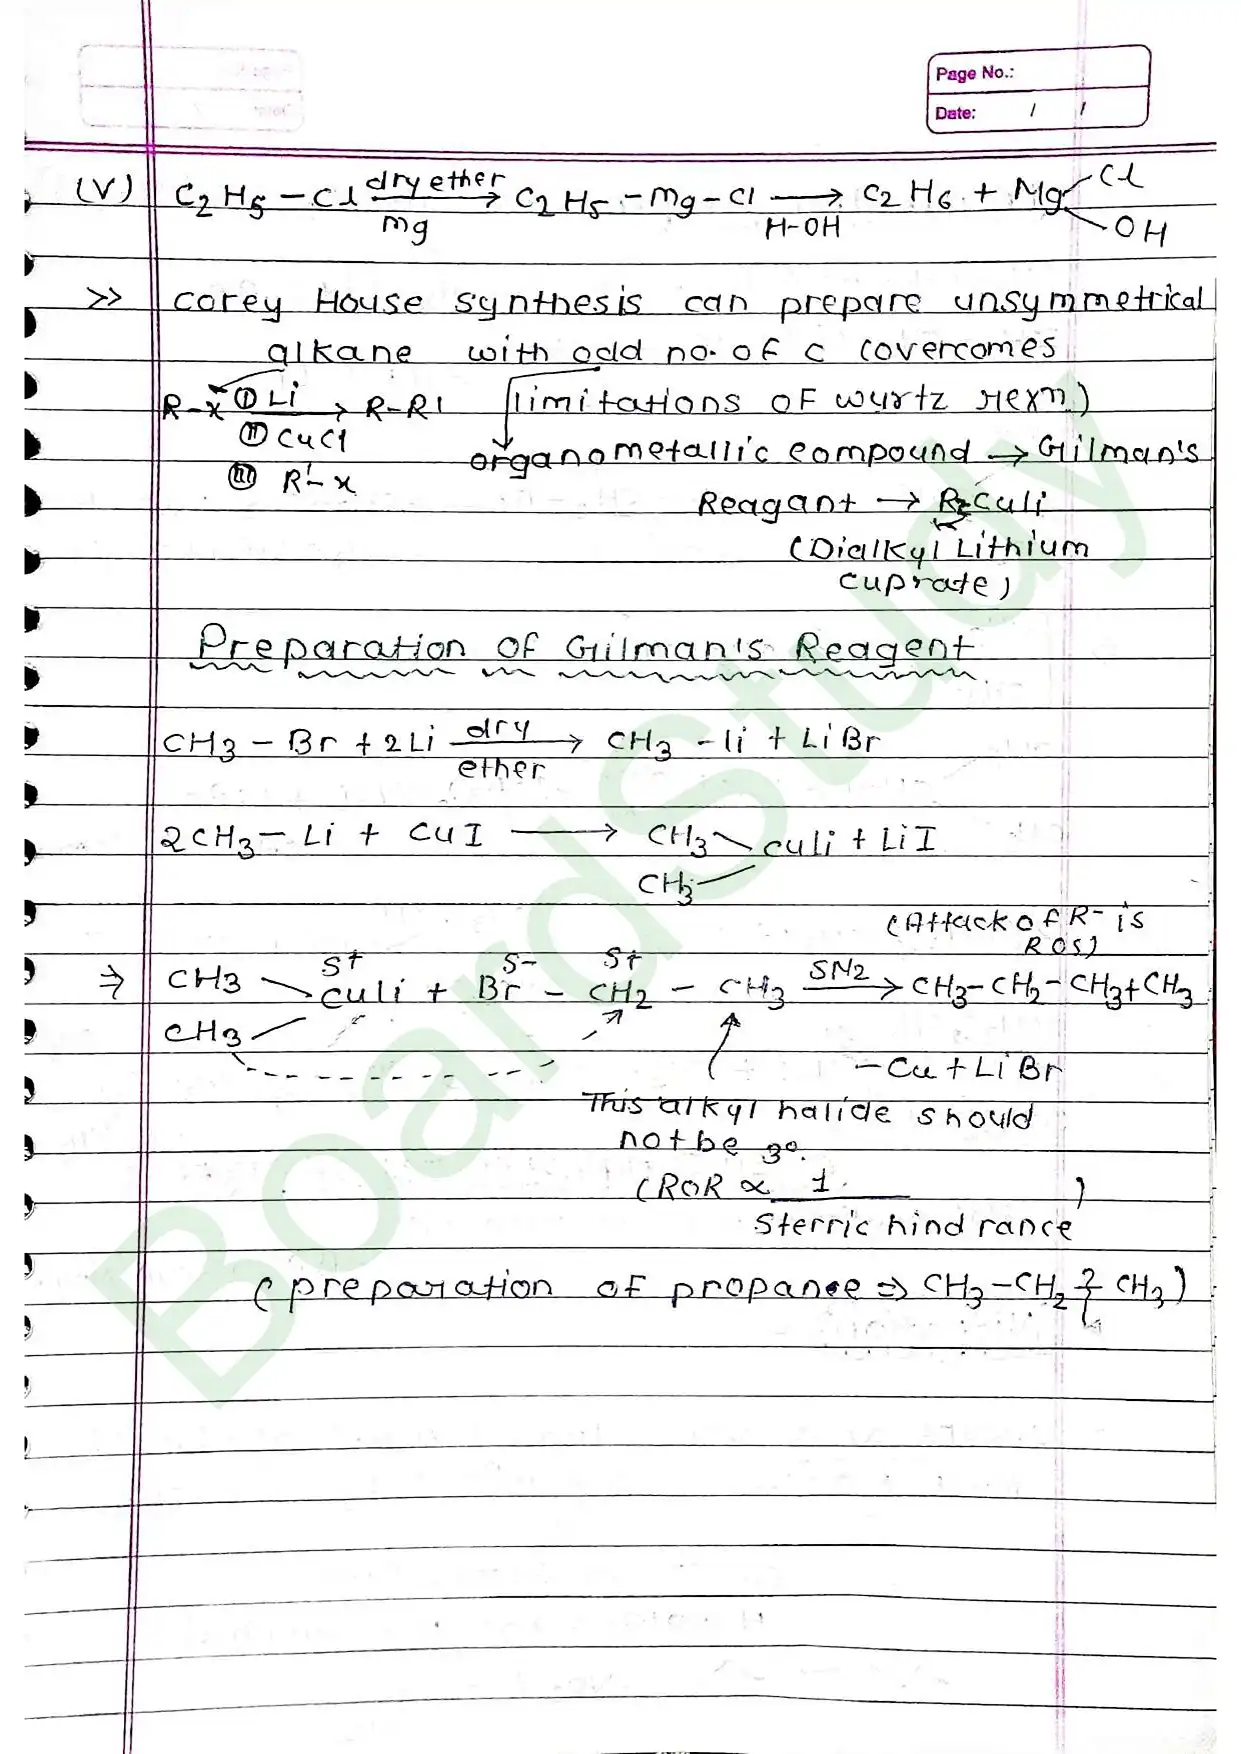 Page No.:
Date: / /
(V) C2H5-Cl dry ether → Mg C2H5-Mg-Cl → H-OH C2H6 + Mg Cl OH
>> corey House synthesis can prepare unsymmetrical
alkane with odd no. of c (overcomes
R-x ① Li → R-R1 limitations of wurtz rexn.)
② CuCl
organometallic compound → Gilman's
③ R'-x
Reagant → R2CuLi
(Dialkyl Lithium
cuprate)
Preparation of Gilman's Reagent
CH3-Br + 2Li dry ether → CH3-li + LiBr
2CH3-Li + CuI → CH3 CH3 culi + LiI
(Attack of R- is
ROS)
⇒ CH3 CH3 δ+ culi + δ- Br - δ+ CH2 - CH3 SN2 → CH3-CH2-CH3+CH3
-Cu + LiBr
This alkyl halide should
not be 3°.
(ROR ∝ 1
Sterric hindrance)
(preparation of propane ⇒ CH3-CH2 CH3)
BoardStudy